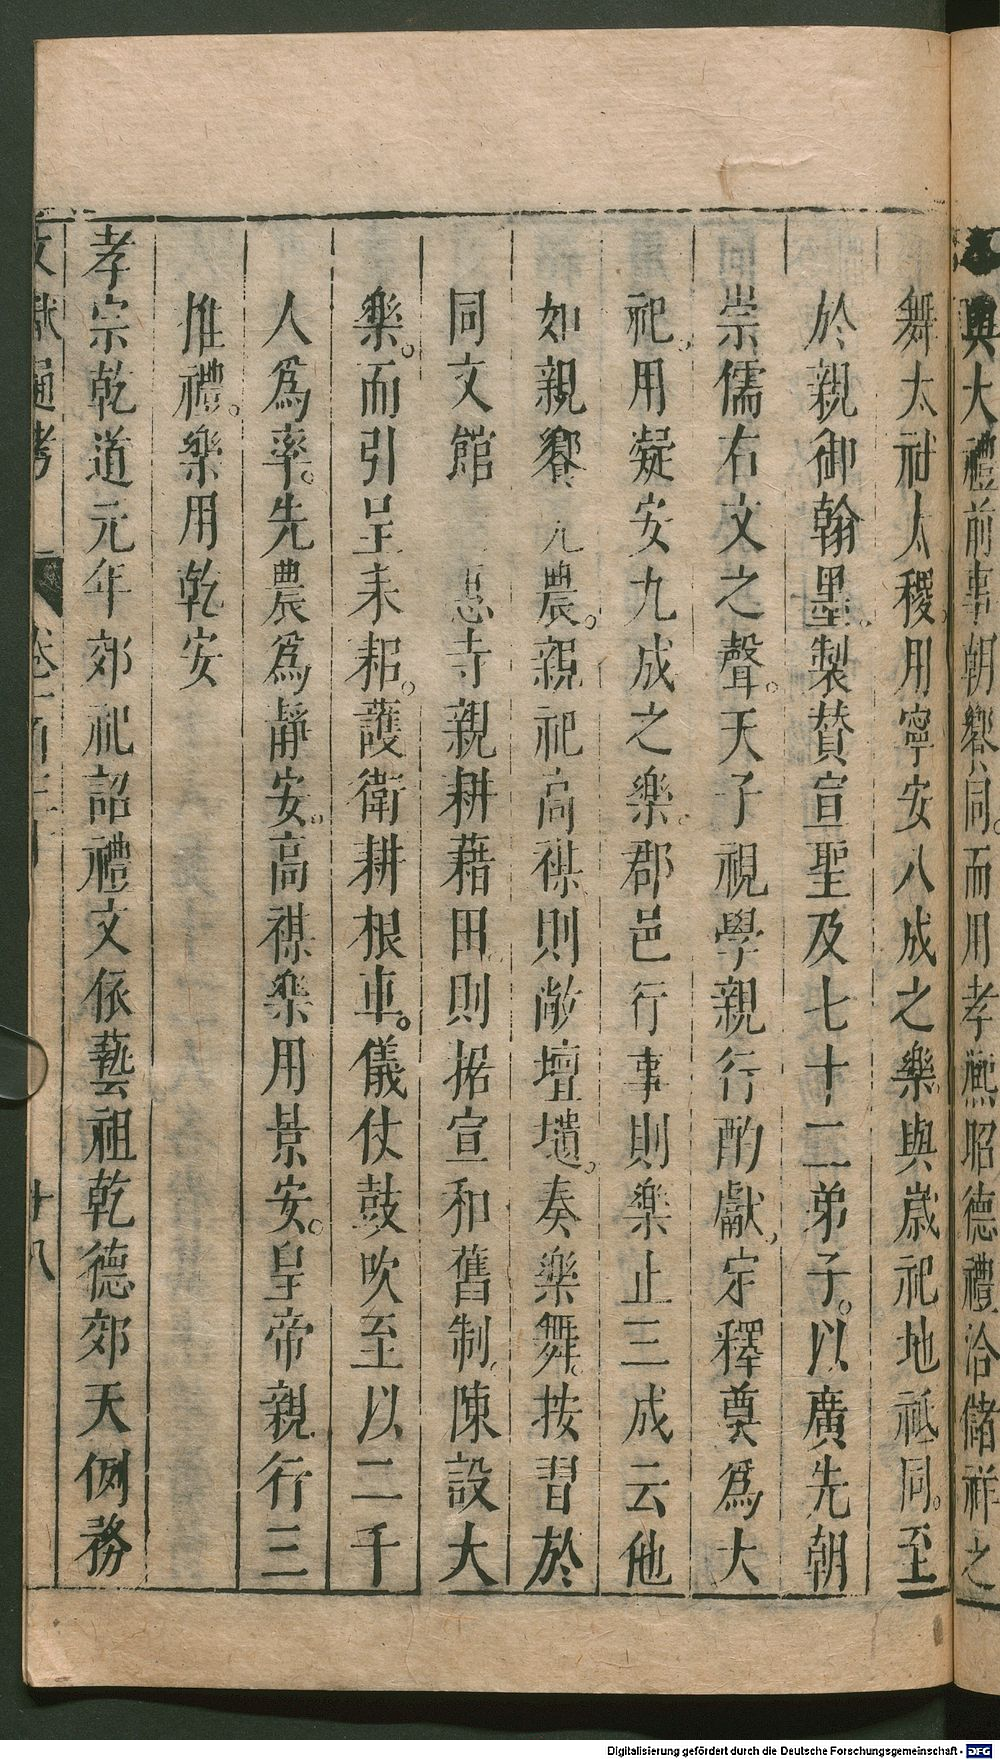 興大禮前事朝饗同。而用孝熙昭德禮洽儲祥之
舞太社太稷。用寧安八成之樂與嵗祀地祇同。至
於親御翰墨。製贊宣聖及七十二弟子。以廣先朝
崇儒右文之聲。天子視學親行酌獻。定釋奠爲大
祀。用凝安九成之樂。郡邑行事則樂止三成云他
如親饗 農。親祀高禖。則敞壇壝。奏樂舞。按習於
同文館 惠寺親耕藉田。則据宣和舊制。陳設大
樂。而引呈耒耜。護衛耕根車。儀仗鼓吹至以二千
人爲率。先農爲靜安。高禖樂用景安。皇帝親行三
推禮。樂用乾安
孝宗乾道元年郊祀詔禮文依藝祖乾德郊天例務
文獻通考 卷一百三十 十八
Digitalisierung gefördert durch die Deutsche Forschungsgemeinschaft - DFG